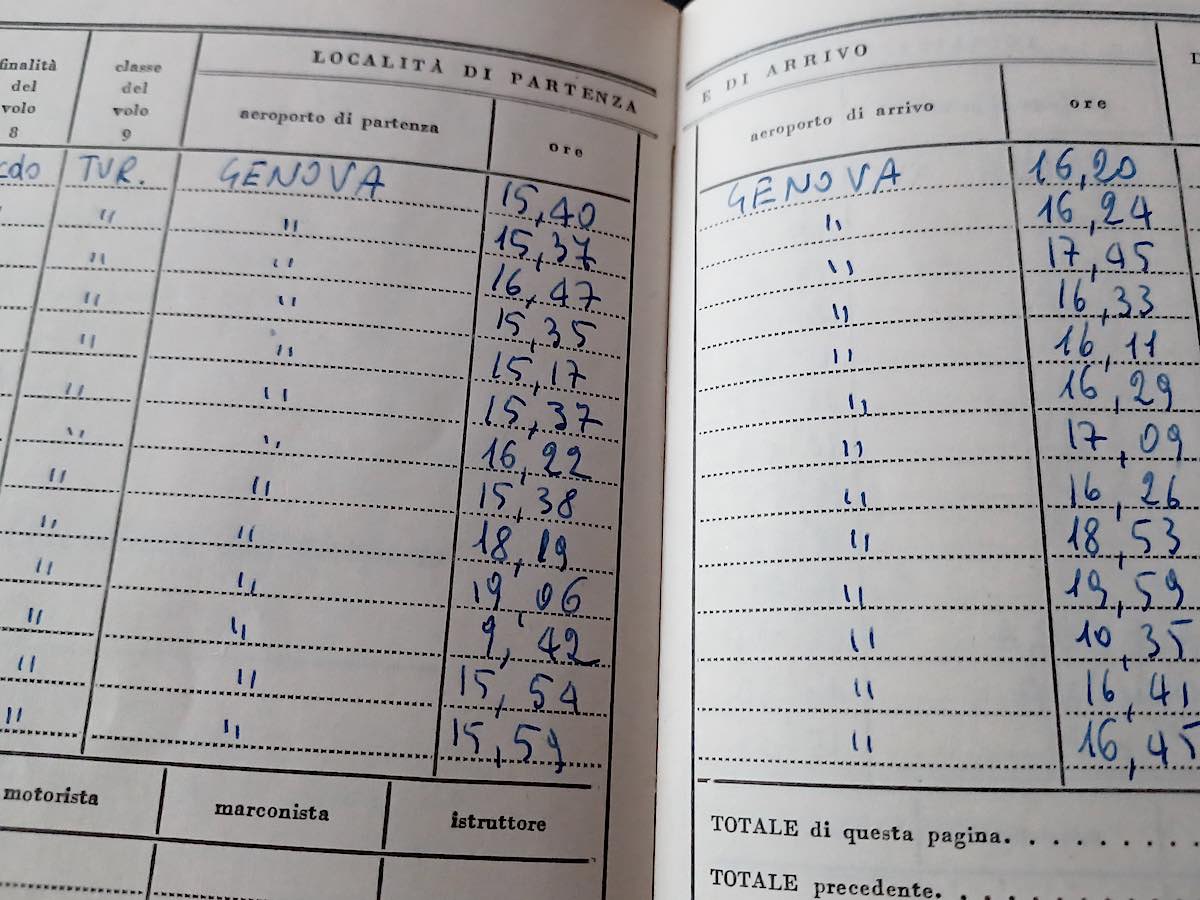 LOCALITÀ DI PARTENZA E DI ARRIVO
finalità del volo 8
classe del volo 9
aeroporto di partenza
ore
aeroporto di arrivo
ore
cdo TUR. GENOVA 15,40 GENOVA 16,20
" " 15,37 " 16,24
" " 16,47 " 17,45
" " 15,35 " 16,33
" " 15,17 " 16,11
" " 15,37 " 16,29
" " 16,22 " 17,09
" " 15,38 " 16,26
" " 18,19 " 18,53
" " 19,06 " 19,59
" " 9,42 " 10,35
" " 15,54 " 16,41
" " 15,59 " 16,45
motorista marconista istruttore
TOTALE di questa pagina.
TOTALE precedente.